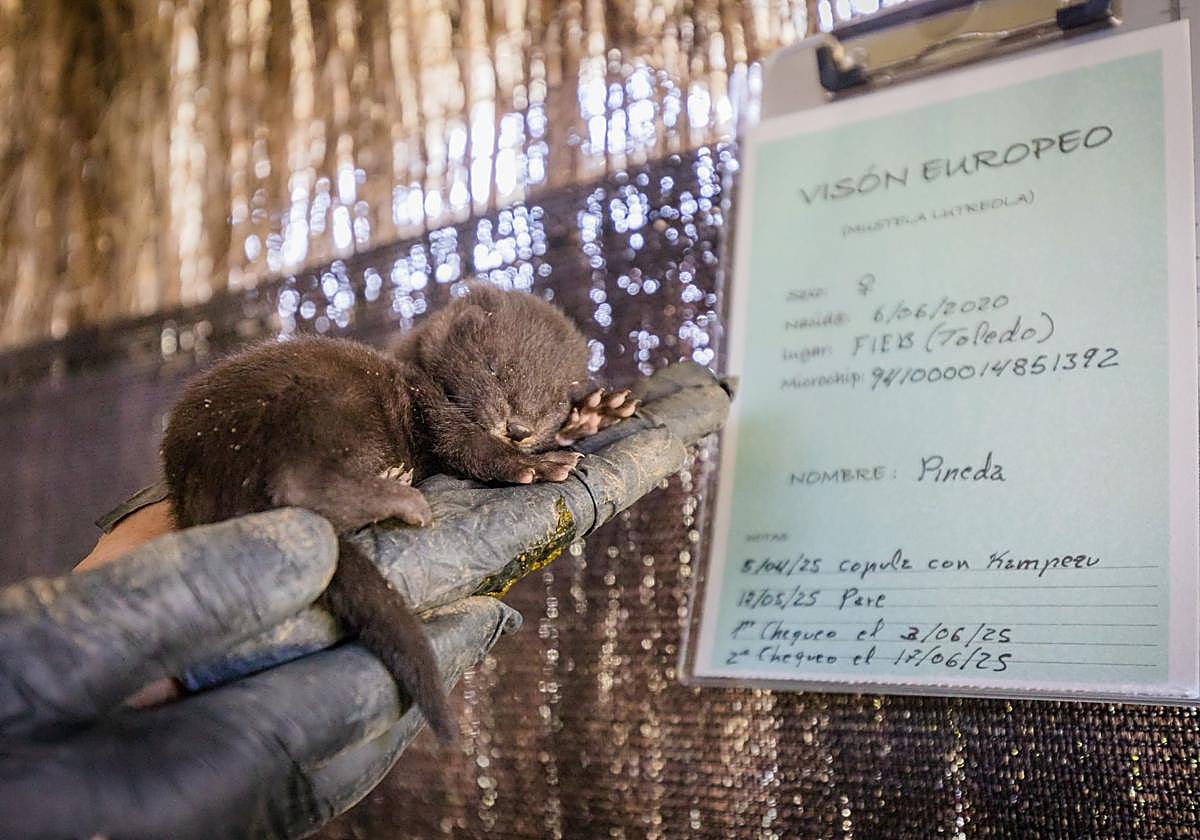 VISÓN EUROPEO
(MUSTELA LUTREOLA)
Sexo: ♀
Nacida: 6/06/2020
Lugar: FIEB (Toledo)
Microchip: 941000014851392
NOMBRE: Pineda
NOTAS
5/04/25 copula con Kamperu
12/05/25 Pare
1er Chequeo el 3/06/25
2º Chequeo el 17/06/25